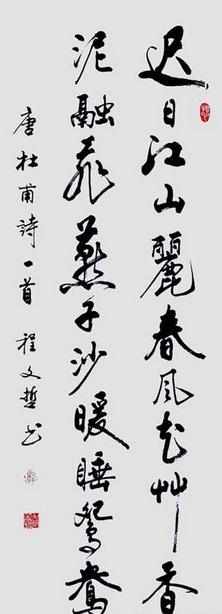 迟日江山麗春风花艸香
泥融飛燕子沙暖睡鴛鴦
唐杜甫詩一首 程文哲书